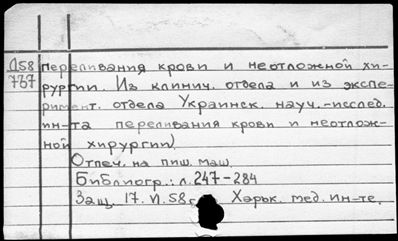 Д58 переливания крови и неотложной хи-
757 рургии. Из клинич. отдела и из экспе-
римент. отдела Украинск. науч.-исслед.
ин-та переливания крови и неотлож-
ной хирургии).
Отпеч. на пиш. маш.
Библиогр.: л. 247-284
Защ. 17. VI. 58 г. Харьк. мед. ин-те.